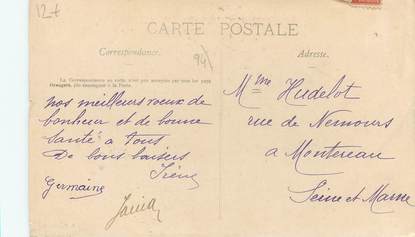 12+
CARTE POSTALE
Correspondance
94
Adresse.
La Correspondance au recto n'est pas acceptée par tous les pays
Étrangers, (Se renseigner à la Poste).
nos meilleurs vœux de
bonheur et de bonne
santé a tous
De bons baisers
Irène
Germaine
Mme Hudelot
rue de Nemours
a Montereau
Seine et Marne